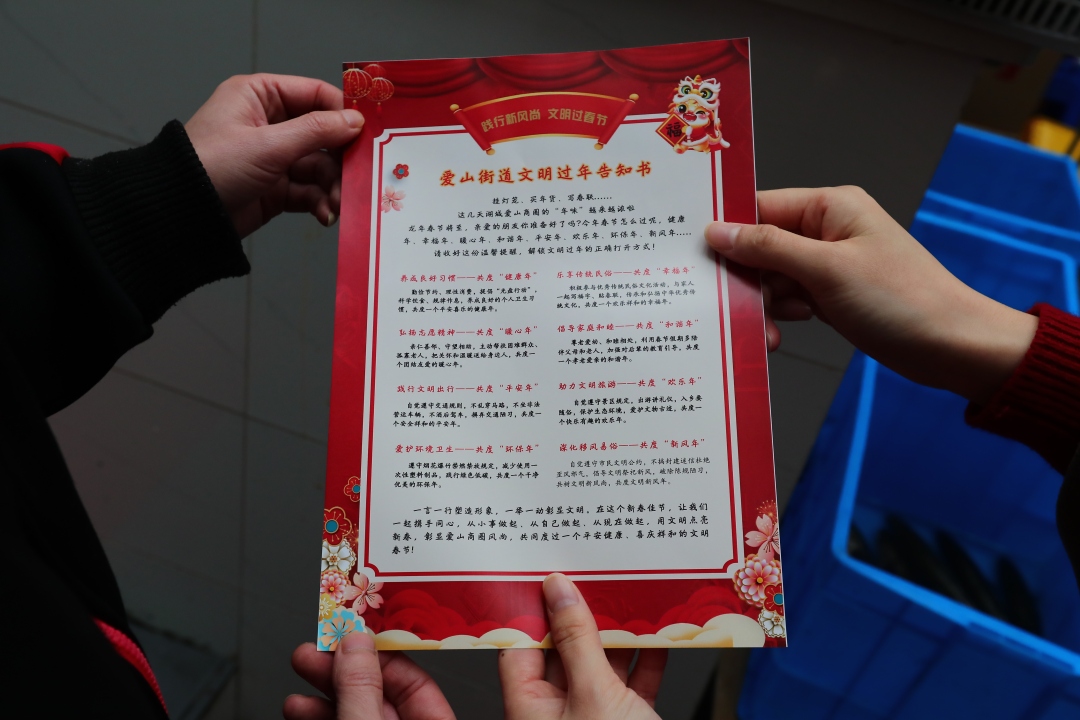 践行新风尚 文明过春节
福
爱山街道文明过年告知书
挂灯笼、买年货、写春联……
这几天湖城爱山商圈的“年味”越来越浓啦
龙年春节将至，亲爱的朋友你准备好了吗?今年春节怎么过呢，健康
年、幸福年、暖心年、和谐年、平安年、欢乐年、环保年、新风年……
请收好这份温馨提醒，解锁文明过年的正确打开方式！
养成良好习惯——共度“健康年”
勤俭节约、理性消费，提倡“光盘行动”，
科学饮食、规律作息，养成良好的个人卫生习
惯，共度一个平安喜乐的健康年。
乐享传统民俗——共度“幸福年”
积极参与优秀传统民俗文化活动，与家人
一起写福字、贴春联，传承和弘扬中华优秀传
统文化，共度一个欢乐祥和的幸福年。
弘扬志愿精神——共度“暖心年”
亲仁善邻、守望相助，主动帮扶困难群众、
孤寡老人，把关怀和温暖送给身边人，共度一
个团结友爱的暖心年。
倡导家庭和睦——共度“和谐年”
尊老爱幼、和睦相处，利用春节假期多陪
伴父母和老人，加强对后辈的教育引导，共度
一个孝老爱亲的和谐年。
践行文明出行——共度“平安年”
自觉遵守交通规则，不乱穿马路，不坐非法
营运车辆，不酒后驾车，摒弃交通陋习，共度一
个安全祥和的平安年。
助力文明旅游——共度“欢乐年”
自觉遵守景区规定，出游讲礼仪，入乡要
随俗，保护生态环境，爱护文物古迹，共度一
个快乐有趣的欢乐年。
爱护环境卫生——共度“环保年”
遵守烟花爆竹禁燃禁放规定，减少使用一
次性塑料制品，践行绿色低碳，共度一个干净
优美的环保年。
深化移风易俗——共度“新风年”
自觉遵守市民文明公约，不搞封建迷信杜绝
歪风邪气，倡导文明祭祀新风，破除陈规陋习，
共树文明新风尚，共度文明新风年。
一言一行塑造形象，一举一动彰显文明，在这个新春佳节，让我们
一起携手同心，从小事做起、从自己做起、从现在做起，用文明点亮
新春，彰显爱山商圈风尚，共同度过一个平安健康、喜庆祥和的文明
春节！